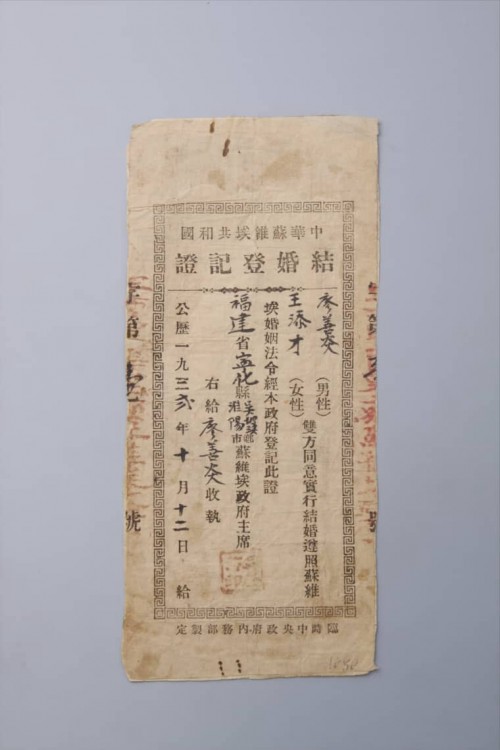 中華蘇維埃共和國
結婚登記證
廖善炎 (男性)
王添才 (女性) 雙方同意實行結婚遵照蘇維
埃婚姻法令經本政府登記此證
右給廖善炎收執
福建省寧化縣 淮陽 市蘇維埃政府主席
公歷一九三弍年十月十二日給
臨時中央政府內務部製定
字第
號
字第
號